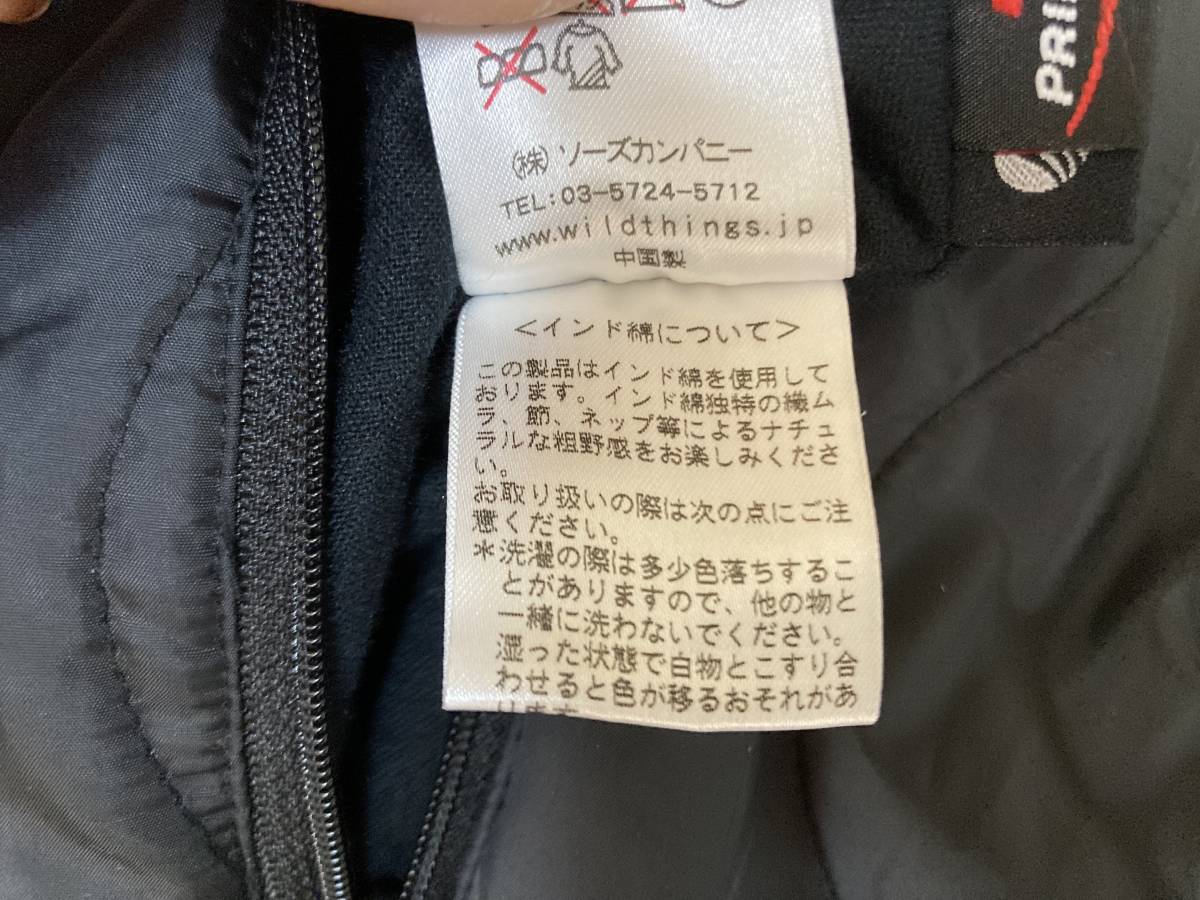 (株) ソーズカンパニー
TEL:03-5724-5712
www.wildthings.jp
中国製
<インド綿について>
この製品はインド綿を使用して
おります。インド綿独特の織ム
ラ、節、ネップ等によるナチュ
ラルな粗野感をお楽しみくださ
い。
お取り扱いの際は次の点にご注
意ください。
*洗濯の際は多少色落ちするこ
とがありますので、他の物と
一緒に洗わないでください。
湿った状態で白物とこすり合
わせると色が移るおそれがあ
ります
PRI